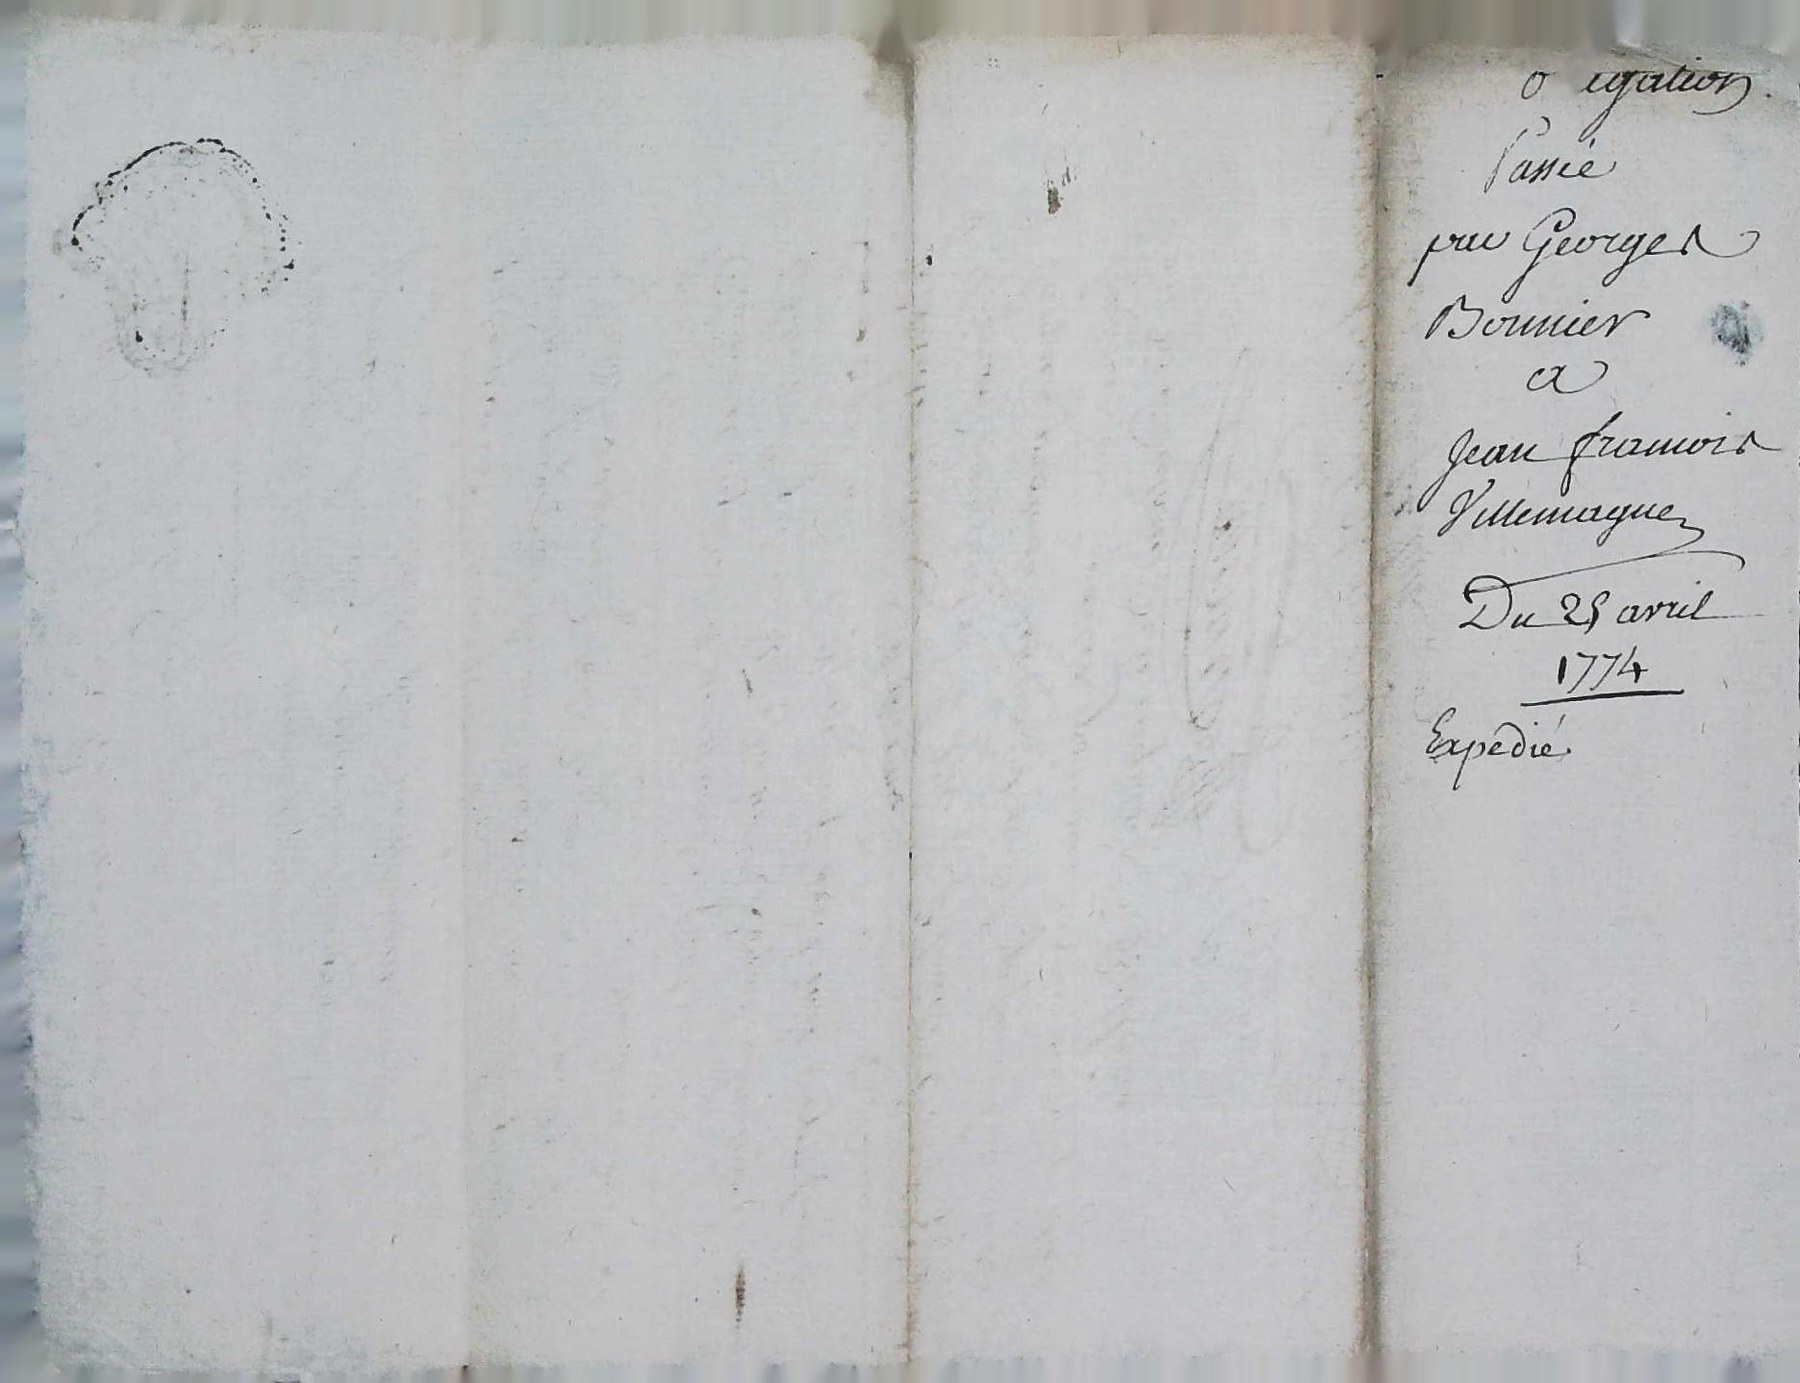 obligation.
Passée
par Georges
Bonnier
a
Jean francois
Villemagne
Du 25 avril
1774
Expedié